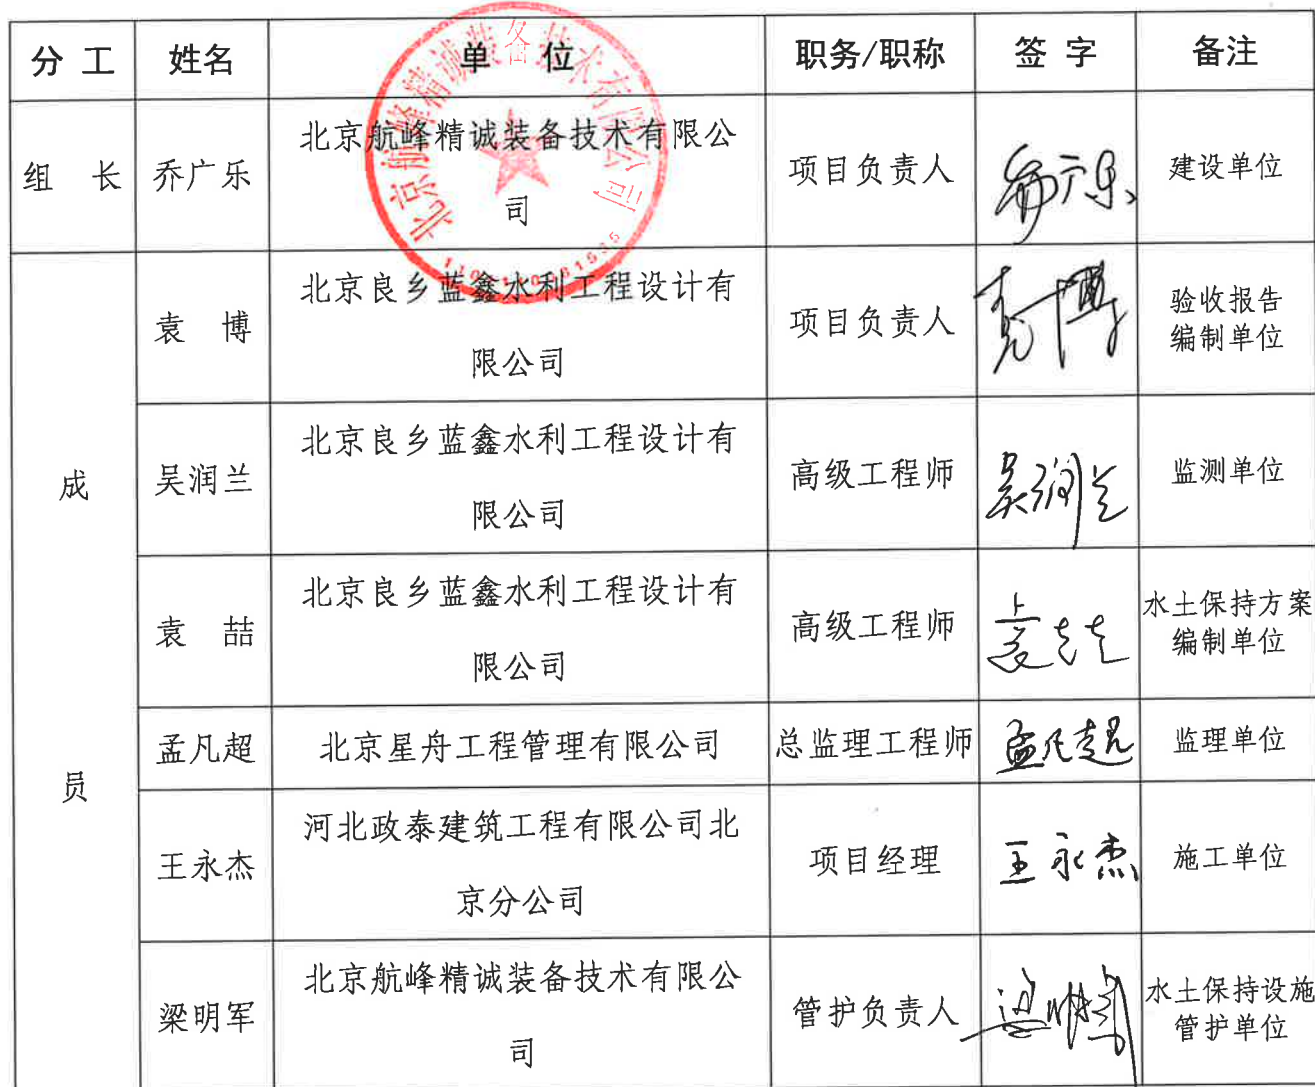 分 工 姓名 单 位 职务/职称 签 字 备注
北京航峰精诚装备技术有限公司
组 长 乔广乐 北京航峰精诚装备技术有限公
司 项目负责人 乔广乐 建设单位
成
员
袁 博 北京良乡蓝鑫水利工程设计有
限公司 项目负责人 袁博 验收报告
编制单位
吴润兰 北京良乡蓝鑫水利工程设计有
限公司 高级工程师 吴润兰 监测单位
袁 喆 北京良乡蓝鑫水利工程设计有
限公司 高级工程师 袁喆 水土保持方案
编制单位
孟凡超 北京星舟工程管理有限公司 总监理工程师 孟凡超 监理单位
王永杰 河北政泰建筑工程有限公司北
京分公司 项目经理 王永杰 施工单位
梁明军 北京航峰精诚装备技术有限公
司 管护负责人 梁明军 水土保持设施
管护单位